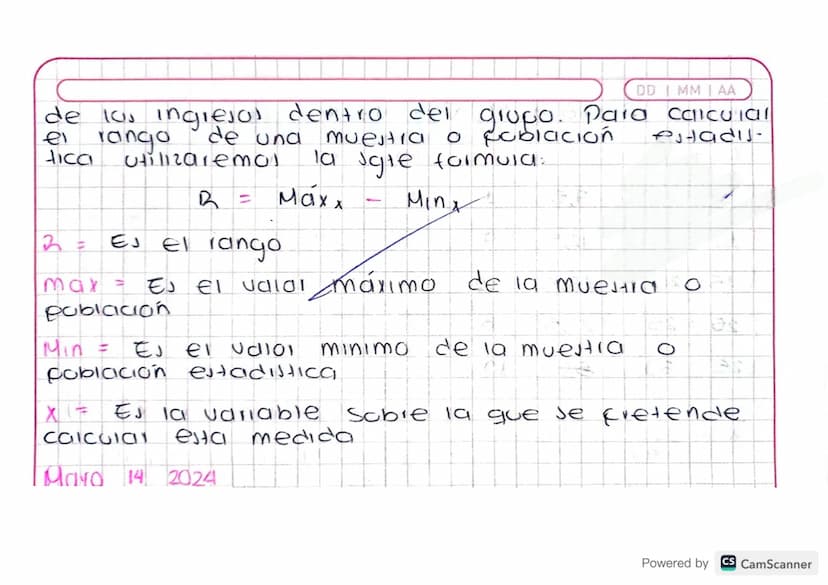 DD | MM | AA
de los ingresos dentro del grupo. Para calcular
el rango de una muestra o población estadis-
tica utilizaremos la sgte formula:
R = Máxx - Minx
R = Es el rango
max = Es el valor máximo de la muestra o
población
Min = Es el valor minimo de la muestra o
población estadistica
x = Es la variable sobre la que se pretende
calcular esta medida
Mayo 14 2024
Powered by CS CamScanner